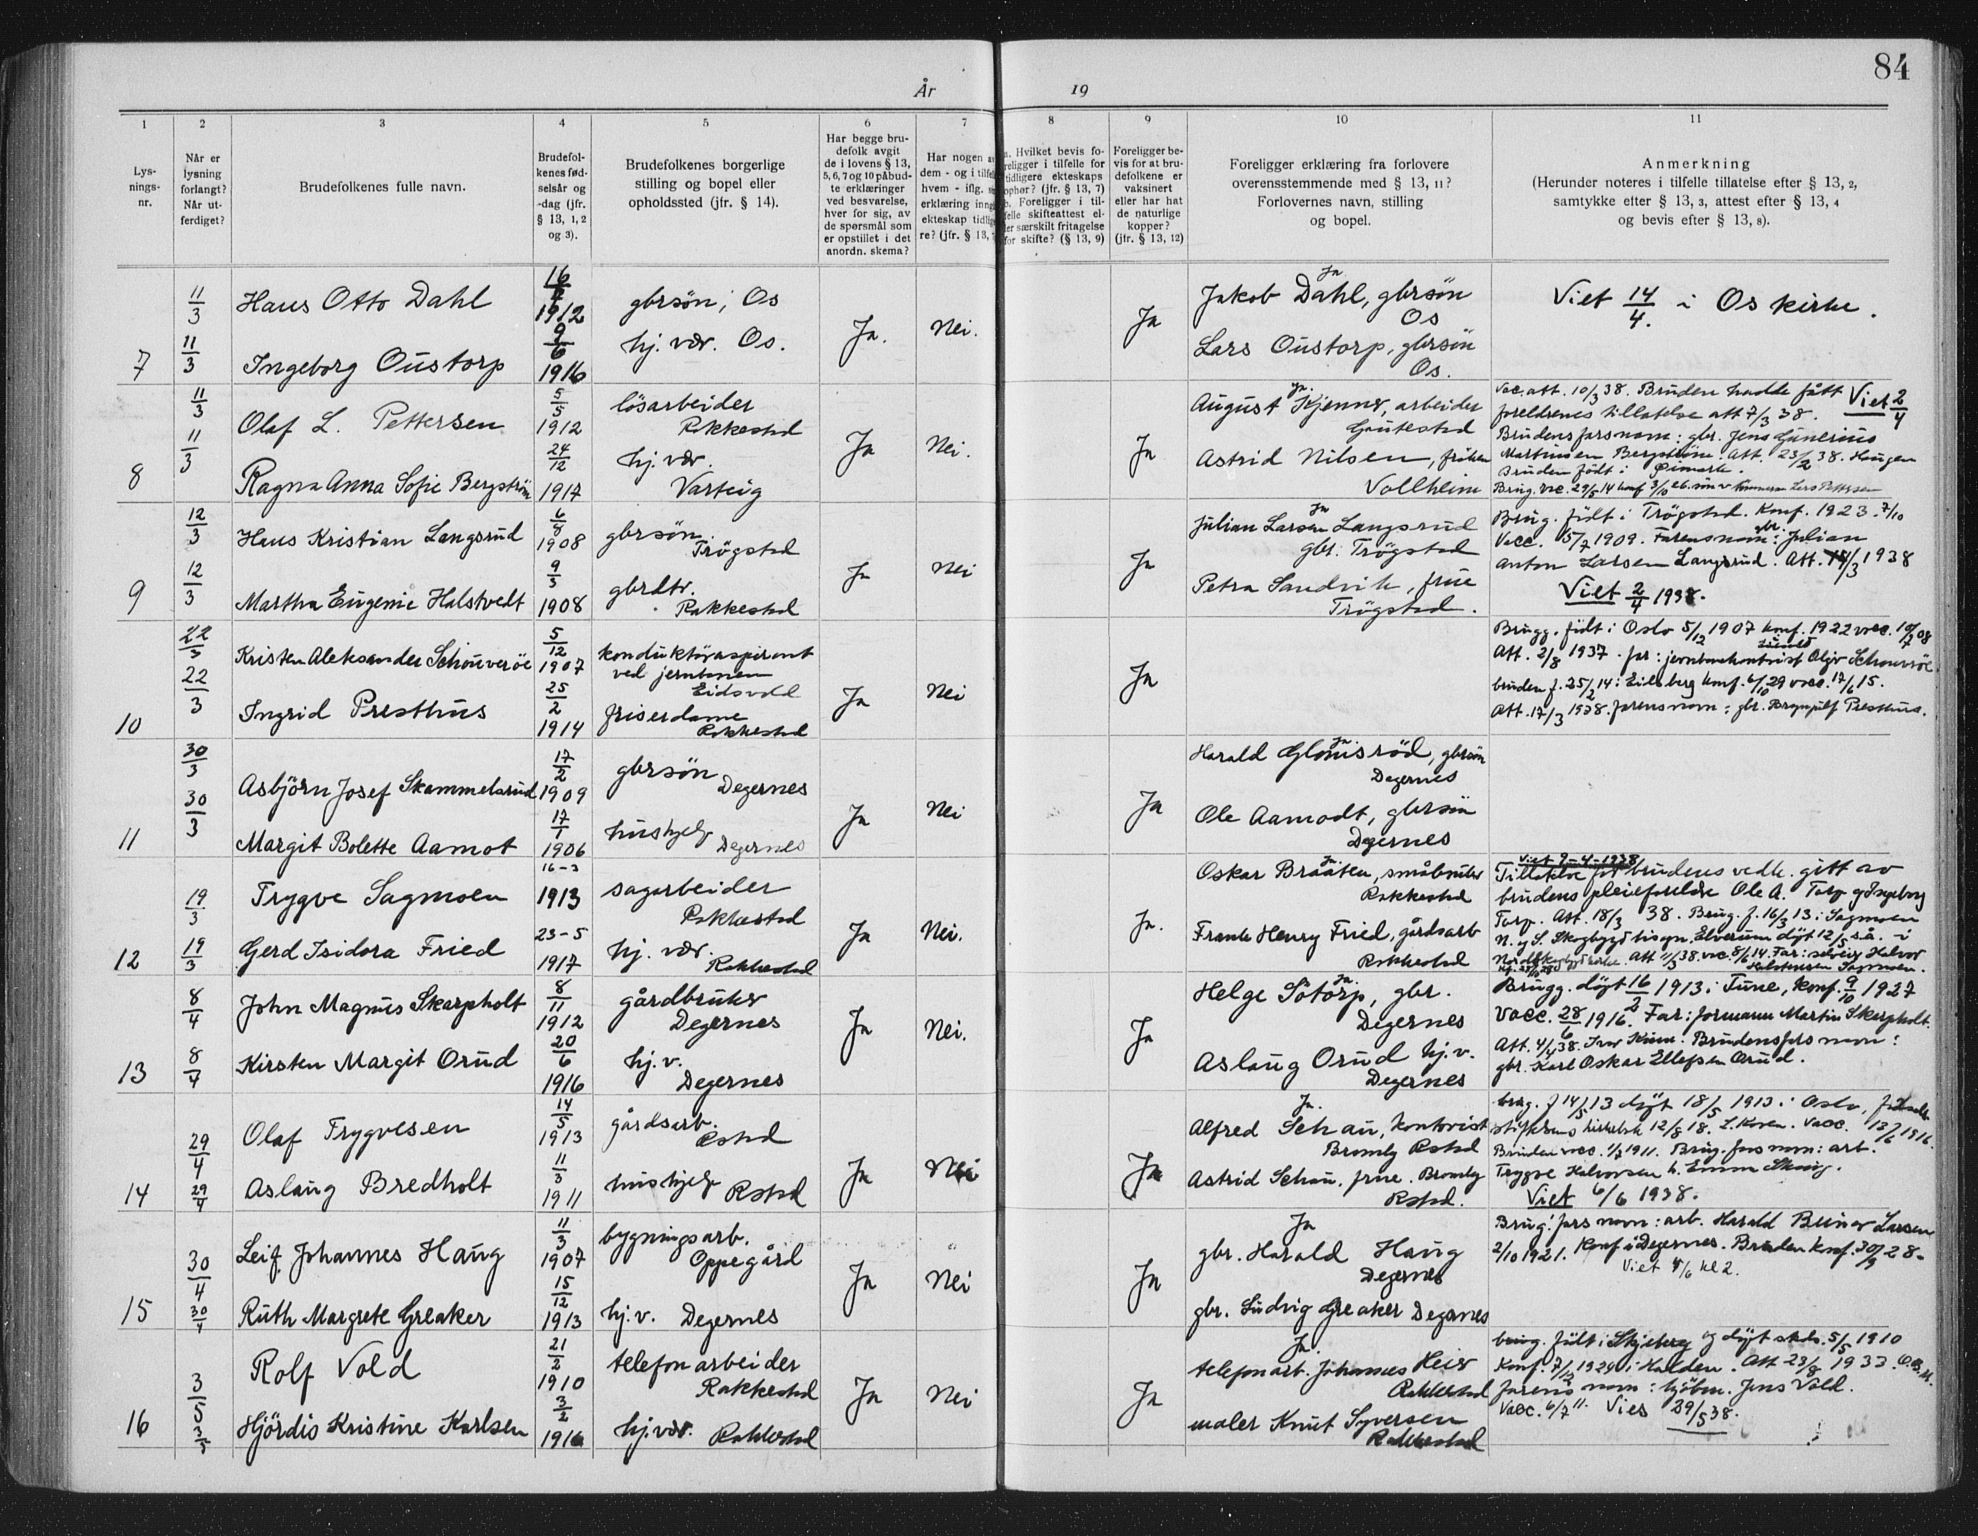 84
År 19
1 2 3 4 5 6 7 8 9 10 11
Lys-
nings-
nr.
Når er
lysning
forlangt?
Når ut-
ferdiget?
Brudefolkenes fulle navn.
Brudefol-
kenes fød-
selsår og
-dag (jfr.
§ 13, 1, 2
og 3).
Brudefolkenes borgerlige
stilling og bopel eller
opholdssted (jfr. § 14).
Har begge bru-
defolk avgit
de i lovens § 13,
5, 6, 7 og 10 påbud-
te erklæringer
ved besvarelse,
hver for sig, av
de spørsmål som
er opstillet i det
anordn. skema?
Har nogen
dem - og i
hvem - iflg.
erklæring
ekteskap
re? (jfr. § 13,
Hvilket bevis fo-
religger i tilfelle for
tidligere ekteskaps
ophør? (jfr. § 13, 7)
b. Foreligger i til-
felle skifteattest el-
ler særskilt fritagelse
for skifte? (§ 13, 9)
Foreligger be-
vis for at bru-
defolkene er
vaksinert
eller har hat
de naturlige
kopper?
(jfr. § 13, 12)
Foreligger erklæring fra forlovere
overensstemmende med § 13, 11?
Forlovernes navn, stilling
og bopel.
Anmerkning
(Herunder noteres i tilfelle tillatelse efter § 13, 2,
samtykke efter § 13, 3, attest efter § 13, 4
og bevis efter § 13, 8).
7
11/3 Hans Otto Dahl 1912 gbrsøn, Os
11/3 Ingeborg Oustorp 9/6 1916 hj. vær. Os.
Ja. Nei. Ja
Ja
Jakob Dahl, gbrsøn
Os
Lars Oustorp, gbrsøn
Os.
Viet 14/4. i Os kirke.
8
11/3 Olaf L. Pettersen 5/5 1912 løsarbeider
Rakkestad
11/3 Ragna Anna Sofie Bergström 24/12 1917 hj. vær.
Varteig
Ja Nei. Ja
Ja
August Kjenner, arbeider
Gautestad
Astrid Nilsen, frøken
Vollheim
Vac. att. 10/3 38. Bruden hadde fått Viet 2/4
foreldrenes tillatelse att 7/3 38.
Brudens farsnavn: gbr. Jens Gunerius
Martinsen Bergström. Att. 23/2 38. Haugen
bruden født i Øimark.
Brug. vac. 29/5 14 konf 3/10 26. søn av Lars Pettersen
9
12/3 Hans Kristian Langsrud 6/8 1908 gbrsøn
Trøgstad
12/3 Martha Eugenie Halstvedt 9/3 1908 gbrdtr.
Rakkestad
Ja Nei Ja
Ja
Julian Larsen Langsrud
gbr. Trøgstad
Petra Sandvik, frue
Trøgstad.
Brug. født i Trøgstad. Konf. 1923. 7/10
Vacc. 5/7 1909. Farens navn: gbr. Julian
Anton Larsen Langsrud. Att. 14/3 1938
Viet 2/4 1938.
10
22/3 Kristen Aleksander Schouverøe 5/12 1907 konduktøraspirant
ved jernbanen
Eidsvold
22/3 Ingrid Presthus 25/2 1914 friserdame
Rakkestad
Ja Nei Ja
Brugg. født i Oslo 5/12 1907 konf. 1922 vacc. 08
Att. 2/8 1937. far: jernbanekontorist Schouverøe.
bruden f. 25/2 14 i Eidsberg konf. 6/10 29 vacc. 17/6 15.
Att. 17/3 1938. farens navn: gbr. Brynjulf Presthus.
11
30/3 Asbjörn Josef Skammelsrud 17/2 1909 gbrsøn
Degernes
30/3 Margit Bolette Aamot 17/1 1906 hushjelp
Degernes
Ja Nei Ja
Ja
Harald Glomsrød, gbrsøn
Degernes
Ole Aamodt, gbrsøn
Degernes
12
19/3 Trygve Sagmoen 16-3 1913 sagarbeider
Rakkestad
19/3 Gerd Isidora Fried 23-5 1917 hj. vær.
Rakkestad
Ja Nei. Ja.
Ja
Oskar Braaten, småbruker
Rakkestad
Frank Henry Fried, gårdsarb
Rakkestad
Viet 9-4-1938
Tillatelse for brudens vedk. gitt av
brudens pleieforeldre Ole A. Torp og Ingeborg
Torp. Att. 18/3 38. Brug. f. 16/3 13 i Sagmoen
N. y S. Skogbygd bisogn, Elverum døpt 12/5 s.å. i
Nordskogbygd kirke. Att 11/3 38. vac. 8/6 14. Far: selveier Halvor
Halstensen Sagmoen.
13
8/4 John Magnus Skarpholt 8/11 1912 gårdbruker
Degernes
8/4 Kirsten Margit Orud 20/6 1916 hj. v.
Degernes
Ja Nei. Ja
Ja
Helge Sötorp, gbr.
Degernes
Aslaug Orud hj. v.
Degernes
Brugg. døpt 16/2 1913 i Tune, konf. 9/10 1927
Vacc. 28/6 1916. Far: formann Martin Skarpholt.
Att. 4/4 38. Brudens fars navn:
gbr. Karl Oskar Ellefsen Orud.
14
29/4 Olaf Trygvesen 14/5 1913 gårdsarb.
Rstad
29/4 Aslaug Bredholt 11/3 1911 hushjelp Rstad
Ja Nei Ja
Ja.
Alfred Schau, kontorist
Bromly Rstad
Astrid Schau, frue. Bromly
Rstad.
brug. f 14/5 13 døpt 18/5 1913 i Oslo,
stiftelsens kirkebok 12/8 18. vacc. 13/6 1916.
Bruden vacc. 1/7 1911. Brug. fars navn: arb.
Trygve Halvorsen
Viet 6/6 1938.
15
30/4 Leif Johannes Haug 11/3 1907 bygningsarb.
Oppegård
30/4 Ruth Margrete Greaker 15/12 1913 hj. v. Degernes
Ja Nei Ja
Ja
gbr. Harald Haug
Degernes
gbr. Ludvig Greaker Degernes
Brug. fars navn: arb. Harald Larsen
2/10 1921. Konf i Degernes. Bruden konf. 30/9 28.
Viet 4/6 kl 2.
16
3/5 Rolf Vold 21/2 1910 telefonarbeider
Rakkestad
3/5 Hjördis Kristine Karlsen 3/2 1916 hj. vær. Rakkestad
Ja Nei Ja
Ja
telefonarb. Johannes Heier
Rakkestad
maler Knut Syversen
Rakkestad
brug. født i Skjeberg og døpt stds. 5/5 1910
Konf. 7/12 1924 i Halden. Att 23/8 1933.
farens navn: kjöbm. Jens Vold.
Vacc. 6/7 11. Vies 29/5 38.